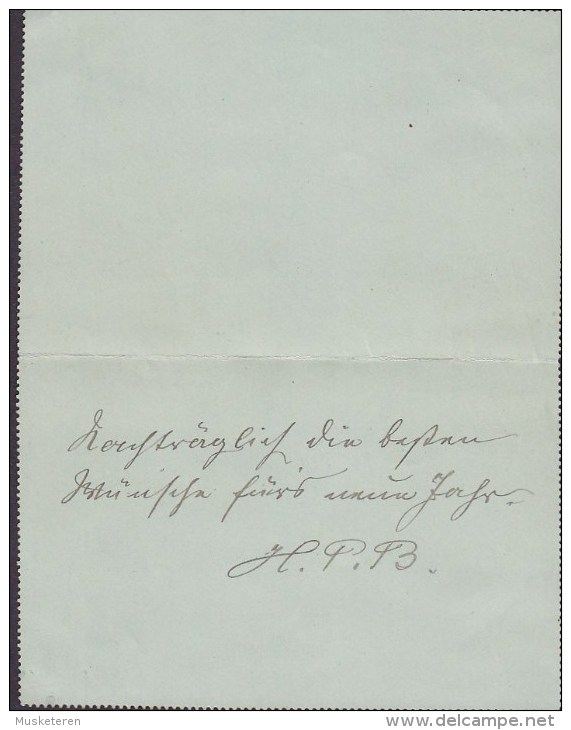 Nachträglich die besten
Wünsche für's neue Jahr.
H. P. B.
Musketeren
delcampe.net